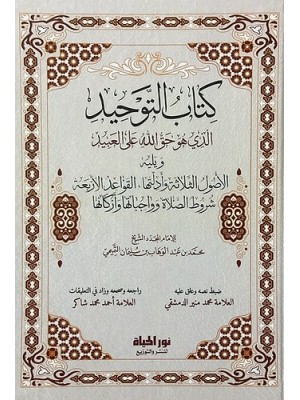 كتاب التوحيد
الذي هو حق الله على العبيد
ويليه
الأصول الثلاثة وأدلتها، القواعد الأربعة
شروط الصلاة وواجباتها وأركانها
للإمام المجدد الشيخ
محمد بن عبد الوهاب بن سليمان التميمي
ضبط نصه وعلق عليه
العلامة محمد منير الدمشقي
راجعه وصححه وزاد في التعليقات
العلامة أحمد محمد شاكر
نور الحياة
للنشر والتوزيع